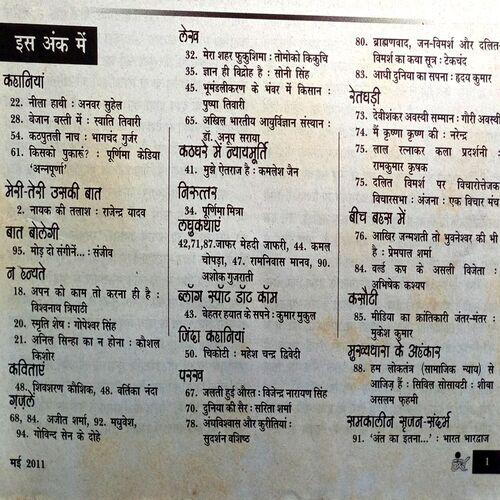 इस अंक में
कहानियां
22. नीला हाथी : अनवर सुहेल
28. बेजान बस्ती में : स्वाति तिवारी
54. कठपुतली नाच : भागचंद गुर्जर
61. किसको पुकारूं? : पूर्णिमा केडिया
'अन्नपूर्णा'
मेरी-तेरी उसकी बात
2. नायक की तलाश : राजेन्द्र यादव
बात बोलेगी
95. मोड़ दो संगीनें... : संजीव
न हन्यते
18. अपन को काम तो करना ही है :
विश्वनाथ त्रिपाठी
20. स्मृति शेष : गोपेश्वर सिंह
21. अनिल सिन्हा का न होना : कौशल
किशोर
कविताएं
48. शिवशरण कौशिक, 48. वर्तिका नंदा
ग़ज़लें
68, 84. अजीत शर्मा, 92. मधुवेश,
94. गोविन्द सेन के दोहे
मई 2011
लेख
32. मेरा शहर फुकुशिमा : तोमोको किकुचि
35. ज्ञान ही विद्रोह है : सोनी सिंह
45. भूमंडलीकरण के भंवर में किसान :
पुष्पा तिवारी
65. अखिल भारतीय आयुर्विज्ञान संस्थान :
डॉ. अनूप सराया
कठघरे में न्यायमूर्ति
41. मुझे ऐतराज है : कमलेश जैन
निरुत्तर
34. पूर्णिमा मित्रा
लघुकथाएं
42,71,87.जाफर मेहदी जाफरी, 44. कमल
चोपड़ा, 47. रामनिवास मानव, 90.
अशोक गुजराती
ब्लॉग स्पॉट डॉट कॉम
43. बेहतर हयात के सपने : कुमार मुकुल
जिंदा कहानियां
50. चिकोटी : महेश चन्द्र द्विवेदी
परख
67. जलती हुई औरत : विजेन्द्र नारायण सिंह
70. दुनिया की सैर : सरिता शर्मा
78. अंधविश्वास और कुरीतियां :
सुदर्शन वशिष्ठ
80. ब्राह्मणवाद, जन-विमर्श और दलित-
विमर्श का कथा सूत्र : टेकचंद
83. आधी दुनिया का सपना : हृदय कुमार
रेतघड़ी
73. देवीशंकर अवस्थी सम्मान : गौरी अवस्थी
74. मैं कृष्णा कृष्ण की : नरेन्द्र
75. लाल रत्नाकर कला प्रदर्शनी :
रामकुमार कृषक
75. दलित विमर्श पर विचारोत्तेजक
विचारसभा : अंजना : एक विचार मंच
बीच बहस में
76. आखिर जन्मशती तो भुवनेश्वर की भी
है : प्रेमपाल शर्मा
84. वर्ल्ड कप के असली विजेता :
अभिषेक कश्यप
कसौटी
85. मीडिया का क्रांतिकारी जंतर-मंतर :
मुकेश कुमार
मुख्यधारा के अहंकार
88. हम लोकतंत्र (सामाजिक न्याय) से
आजिज़ हैं : सिविल सोसायटी : शीबा
असलम फ़हमी
समकालीन सृजन-संदर्भ
91. 'अंत का इतना...' : भारत भारद्वाज
1